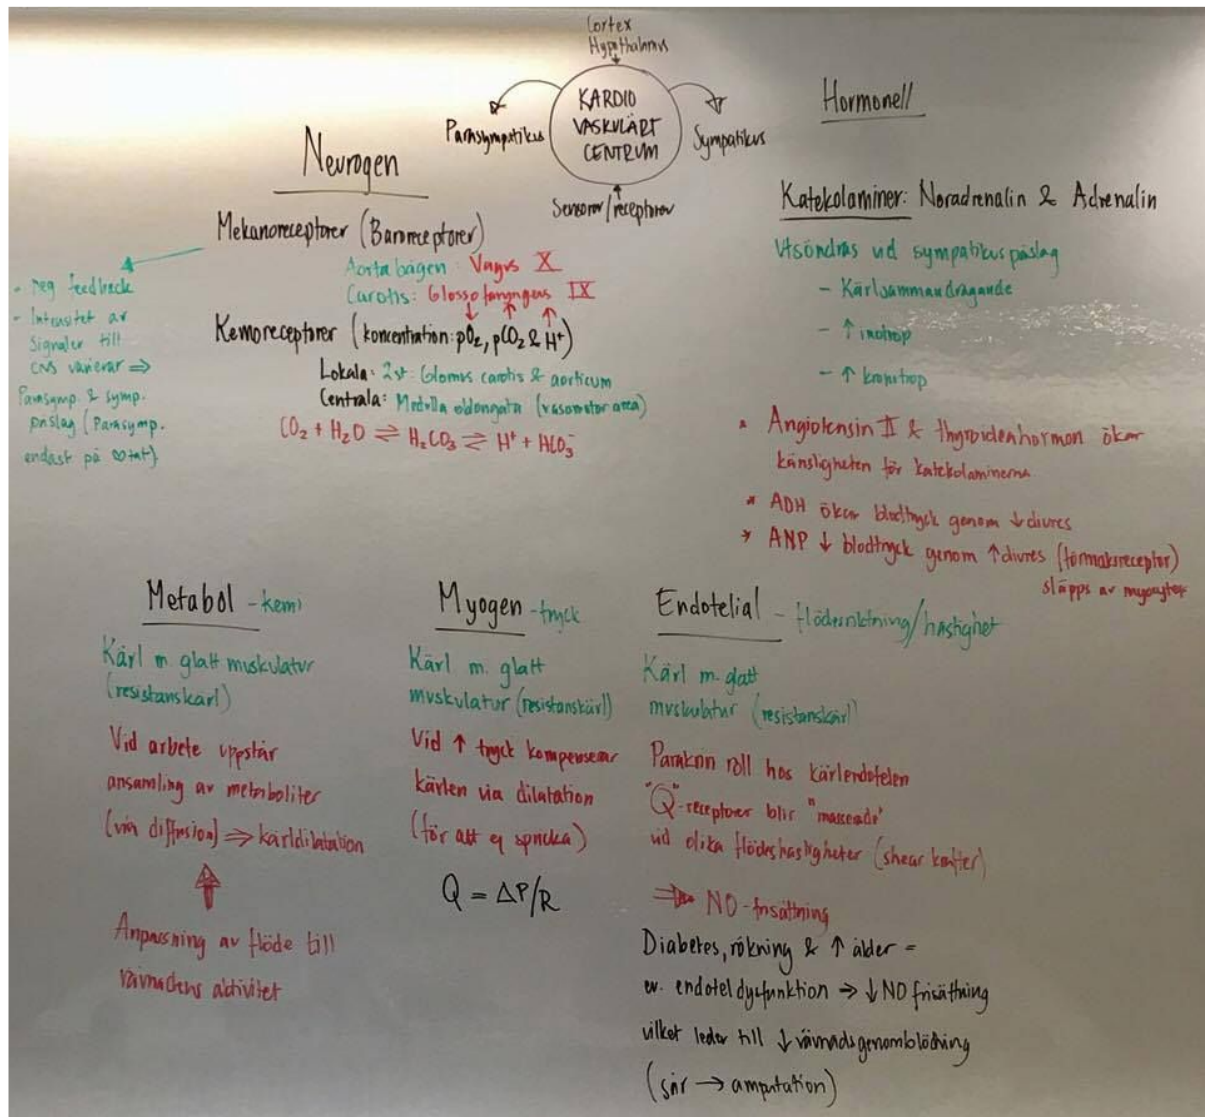 Cortex
Hypothalamus
KARDIO
VASKULÄRT
CENTRUM
Parasympatikus
Sympatikus
Sensorer/receptorer
Neurogen
Mekanoreceptorer (Baroreceptorer)
Aortabågen: Vagus X
Carotis: Glossofaryngeus IX
- neg feedback
- Intensitet av
signaler till
CNS varierar ⇒
Parasymp. & symp.
påslag (Parasymp.
endast på
↓ ↑ ↑
Kemoreceptorer (koncentration: pO₂, pCO₂ & H⁺)
Lokala: 2st: Glomus carotis & aorticum
Centrala: Medulla oblongata (vasomotor area)
CO₂ + H₂O ⇌ H₂CO₃ ⇌ H⁺ + HCO₃⁻
Hormonell
Katekolaminer: Noradrenalin & Adrenalin
Utsöndras vid sympatikuspåslag
- Kärlsammandragande
- ↑ inotrop
- ↑ kronotrop
* Angiotensin II & thyroideahormon ökar
känsligheten för katekolaminerna
* ADH ökar blodtryck genom ↓ diures
* ANP ↓ blodtryck genom ↑ diures (förmaksreceptor)
släpps av myocyter
Metabol - kemi
Kärl m. glatt muskulatur
(resistanskärl)
Vid arbete uppstår
ansamling av metaboliter
(via diffusion) ⇒ kärldilatation
⇑
Anpassning av flöde till
vävnadens aktivitet
Myogen - tryck
Kärl m. glatt
muskulatur (resistanskärl)
Vid ↑ tryck kompenserar
kärlen via dilatation
(för att ej spricka)
Q = ΔP/R
Endotelial - flödesriktning/hastighet
Kärl m. glatt
muskulatur (resistanskärl)
Parakrin roll hos kärlendotelen
"Q"-receptorer blir "masserade"
vid olika flödeshastigheter (shear krafter)
⇒ NO-frisättning
Diabetes, rökning & ↑ ålder =
ev. endoteldysfunktion ⇒ ↓ NO frisättning
vilket leder till ↓ vävnadsgenomblödning
(sår → amputation)